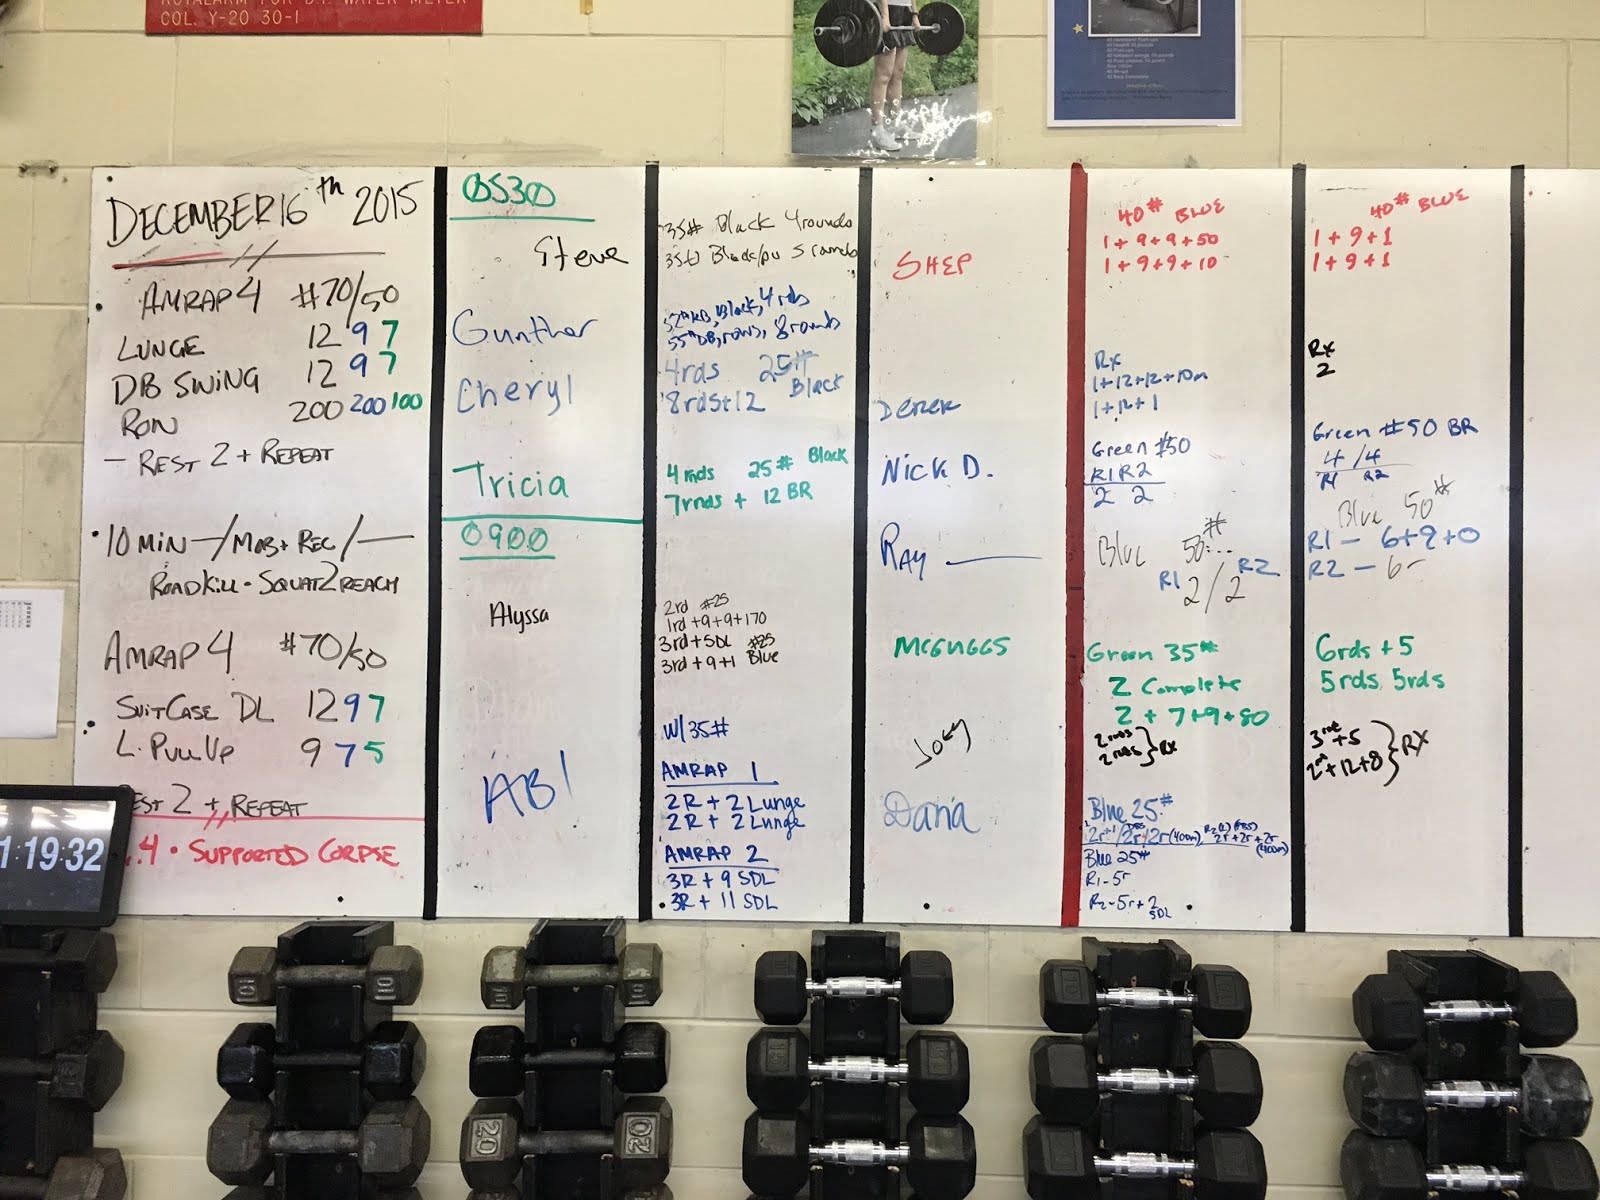 ROYALARM FOR D.I. WATER METER
COL. Y-20 30-1
DECEMBER 16th 2015
AMRAP 4 #70/50
LUNGE 12 9 7
DB SWING 12 9 7
RUN 200 200 100
- REST 2 + REPEAT
10 MIN —/MOB + REC/—
ROADKILL - SQUAT 2 REACH
AMRAP 4 #70/50
SUITCASE DL 12 9 7
L. PULL UP 9 7 5
EST 2 + REPEAT
.4 • SUPPORTED CORPSE
1:19:32
0530
Steve
Gunther
Cheryl
Tricia
0900
Alyssa
AB!
35# Black 4 rounds
35# Black/pu 5 rounds
Black, 4 rds
55# DB, rows, 8 rounds
4rds 25#
Black
8rds+12
4 rnds 25# Black
7rnds + 12 BR
2rd #25
1rd +9+9+170
3rd+5DL #25
3rd+9+1 Blue
W/35#
AMRAP 1
2R + 2 Lunge
2R + 2 Lunge
AMRAP 2
3R + 9 SDL
3R + 11 SDL
SHEP
DEREK
NICK D.
RAY
MCGUGGS
JOEY
Dana
40# BLUE
1+9+9+50
1+9+9+10
Rx
1+12+12+10m
1+12+1
Green #50
R1 R2
2 2
Blue 50#...
R1 2/2 R2
Green 35#
2 Complete
2 + 7+9+80
2 rnds
2 rnds } Rx
Blue 25#
Blue 25#
R1-5r
R2-5r+2
SDL
40# BLUE
1+9+1
1+9+1
Rx
2
Green #50 BR
4/4
R1 R2
Blue 50#
R1 - 6+9+0
R2 - 6-
6rds + 5
5rds, 5rds
3rd+5
2rd+12+8 } RX
10 10
10 10
20 20